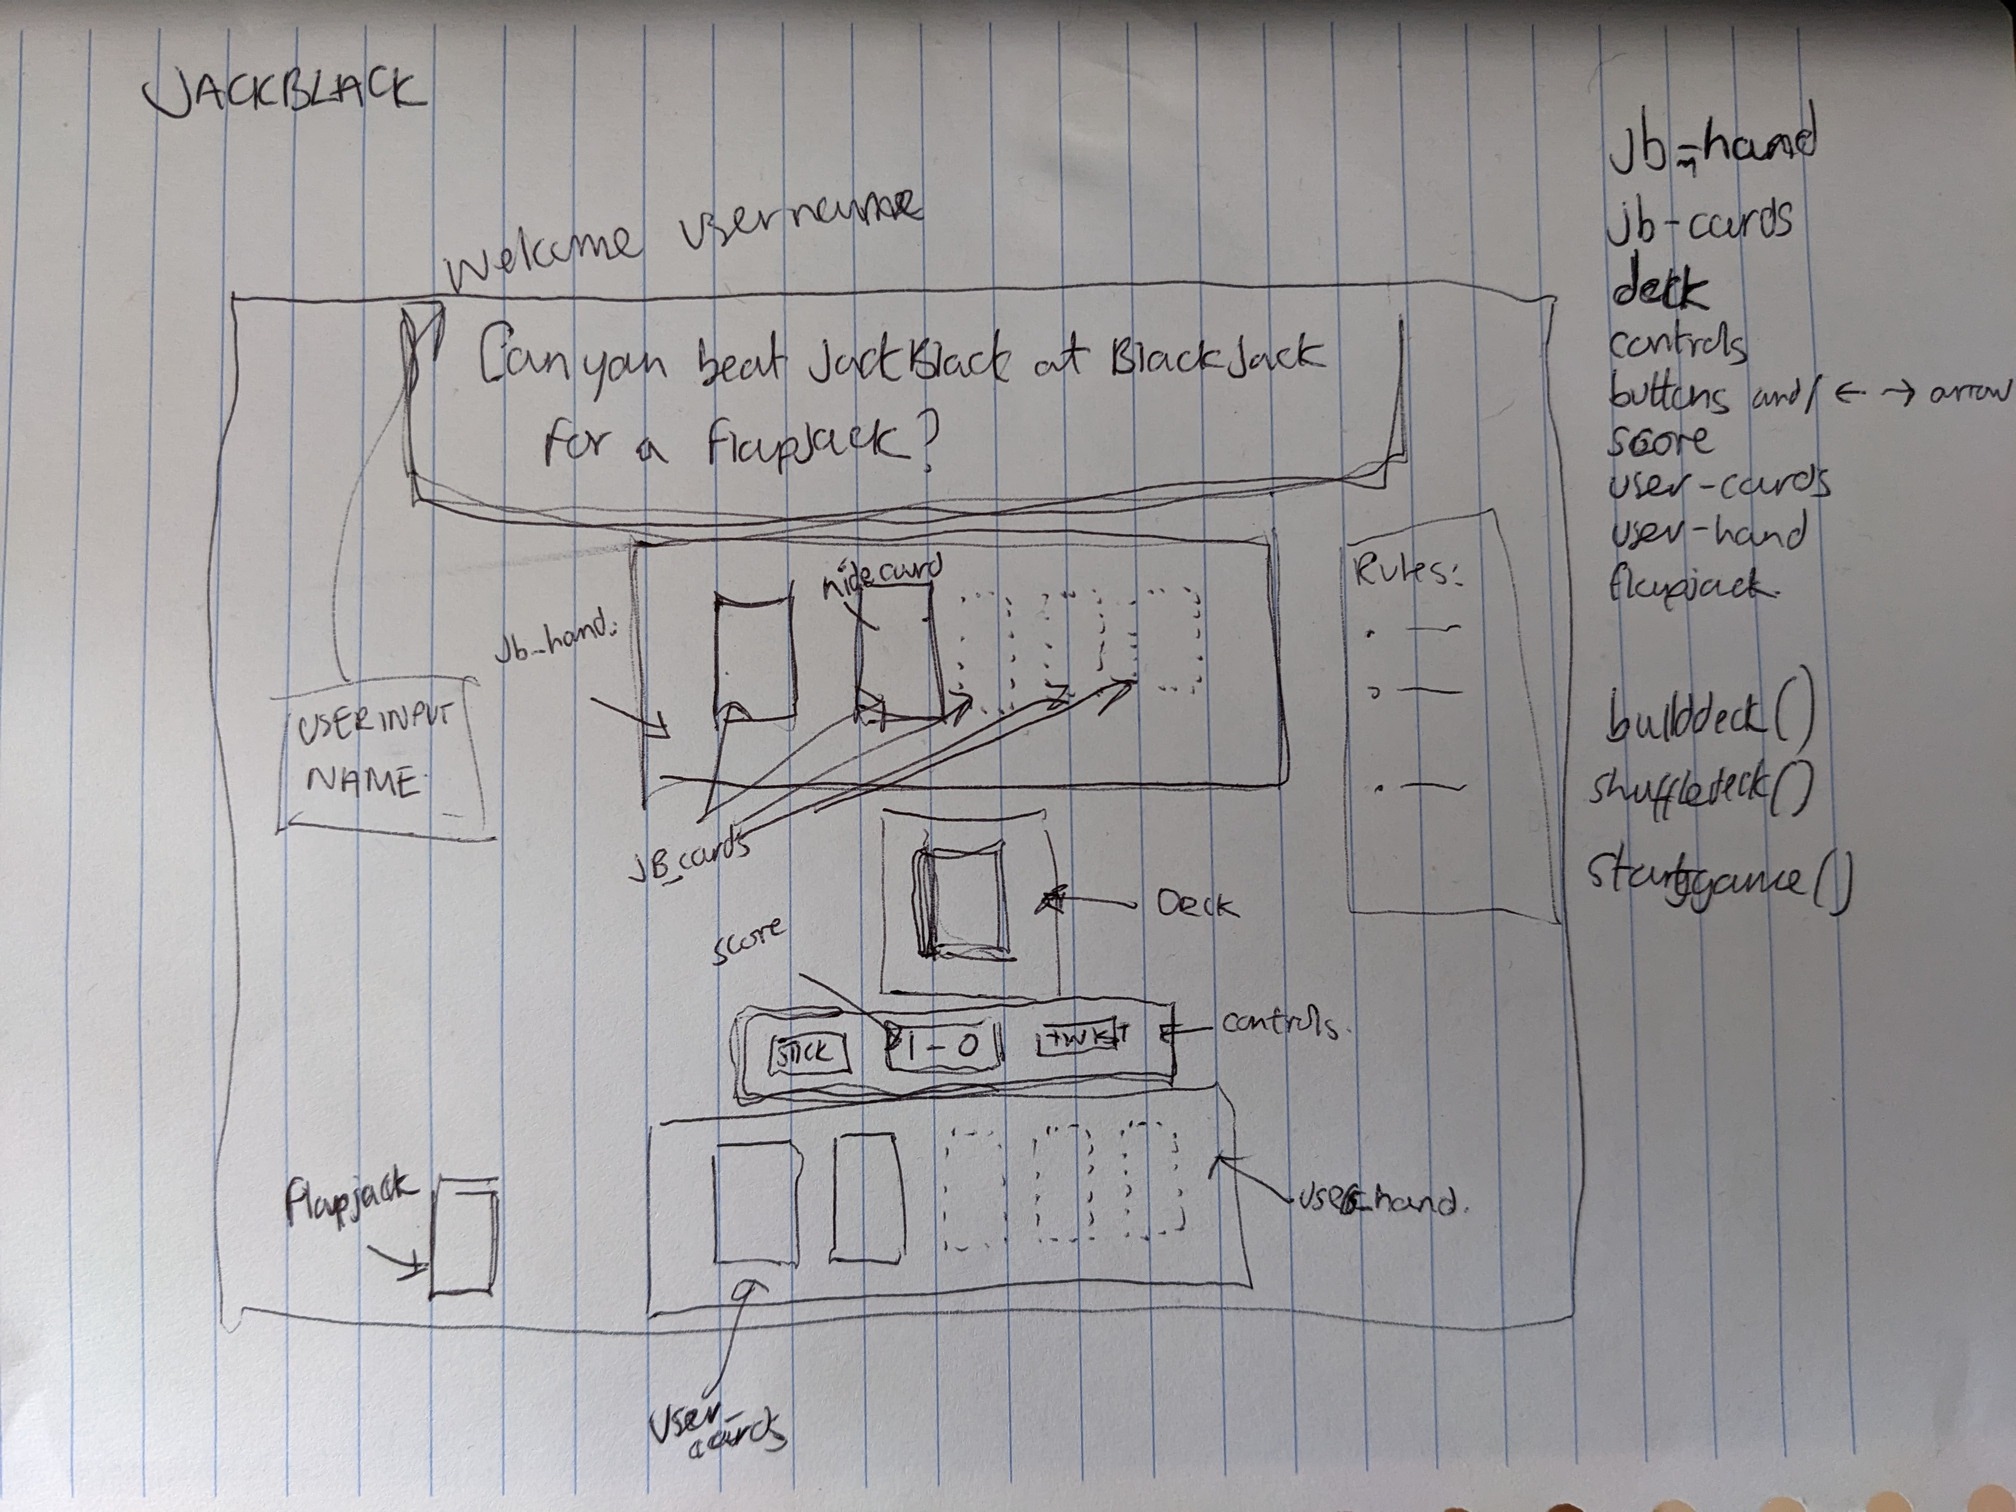 JACKBLACK
Welcome username
Can you beat JackBlack at BlackJack
for a flapjack?
hidecard
Jb_hand:
Rules:
USERINPUT
NAME
JB_cards
Deck
score
STICK
1-0
TWIST
controls.
flapjack
user_hand.
user_
cards
jb_hand
jb-cards
deck
controls
buttons and/ ← → arrow
score
user-cards
user-hand
flapjack
builddeck()
shuffledeck()
startgame()